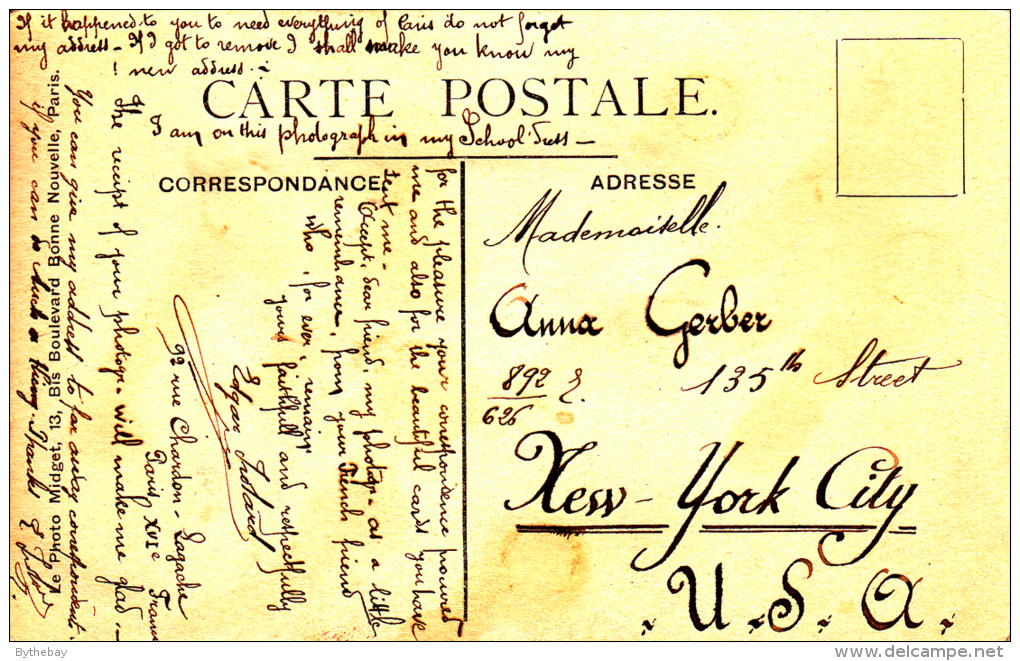 If it happened to you to need everything of Paris do not forget
my address - If I got to remove I shall make you know my
! new address. -
CARTE POSTALE.
I am on this photograph in my School Dress -
CORRESPONDANCE
for the pleasure your correspondence procured
me and also for the beautiful cards you have
sent me -
Accept, dear friend, my photogr. as a little
remembrance, from your French friend
who, for ever, remains
yours faithfull and respectfully
Edgar
99 rue Chardon - Lagache
Paris XVIe France
The receipt of your photogr. will make me glad -
You can give my address to far away correspondent.
if you can do such a thing Thanks
Le Photo Midget, 13, Bis Boulevard Bonne Nouvelle, Paris.
ADRESSE
Mademoiselle.
Anna Gerber
892 E. 135th Street
626
New-York City
. U. S. A.
Bythebay
delcampe.net